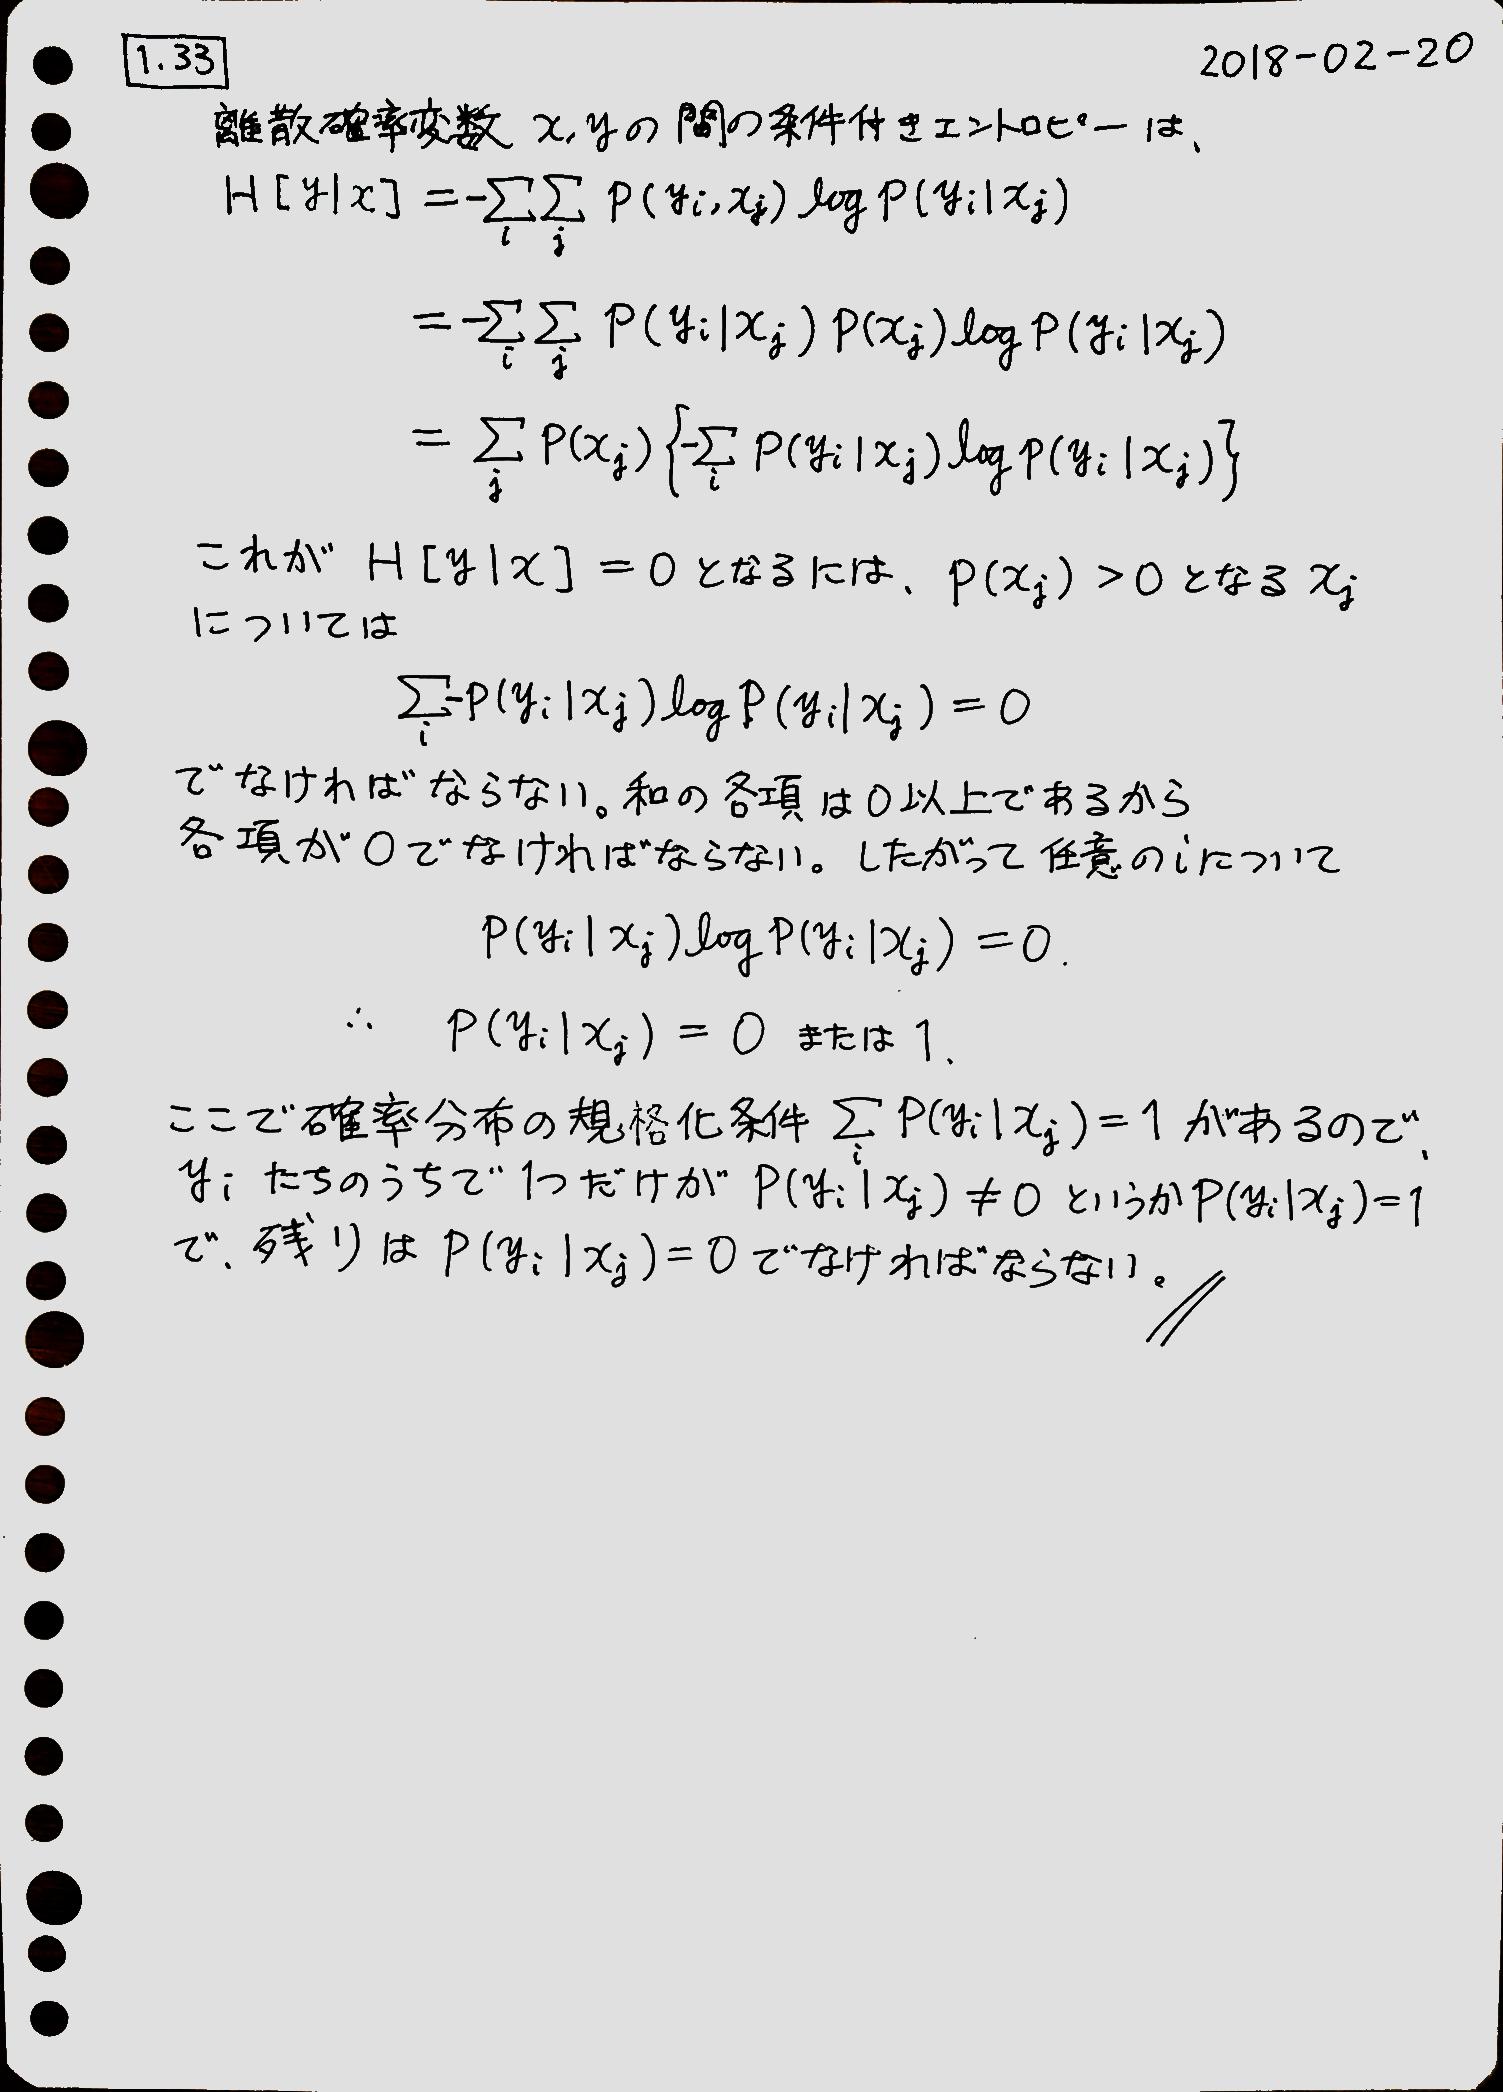 1.33
2018-02-20
離散確率変数 x, y の間の条件付きエントロピーは、
H[y|x] = -∑_i ∑_j P(y_i, x_j) log P(y_i|x_j)
= -∑_i ∑_j P(y_i|x_j) P(x_j) log P(y_i|x_j)
= ∑_j P(x_j) {-∑_i P(y_i|x_j) log P(y_i|x_j)}
これが H[y|x] = 0 となるには、P(x_j) > 0 となる x_j
については
∑_i -P(y_i|x_j) log P(y_i|x_j) = 0
でなければならない。和の各項は0以上であるから
各項が0でなければならない。したがって任意のiについて
P(y_i|x_j) log P(y_i|x_j) = 0.
∴ P(y_i|x_j) = 0 または 1.
ここで確率分布の規格化条件 ∑_i P(y_i|x_j) = 1 があるので、
y_i たちのうちで1つだけが P(y_i|x_j) ≠ 0 というか P(y_i|x_j) = 1
で、残りは P(y_i|x_j) = 0 でなければならない。//